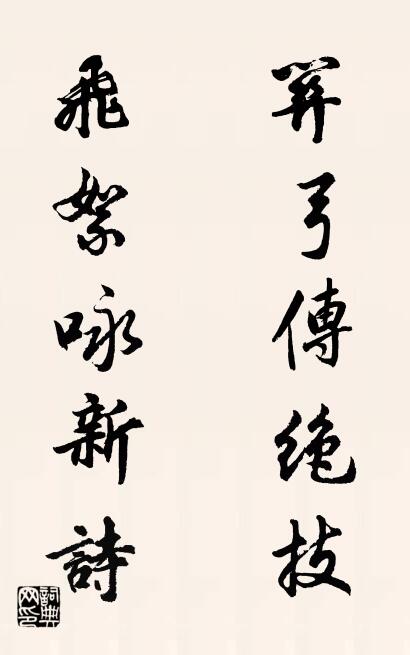 羿弓傳絶技
飛絮咏新詩
詞典
网印